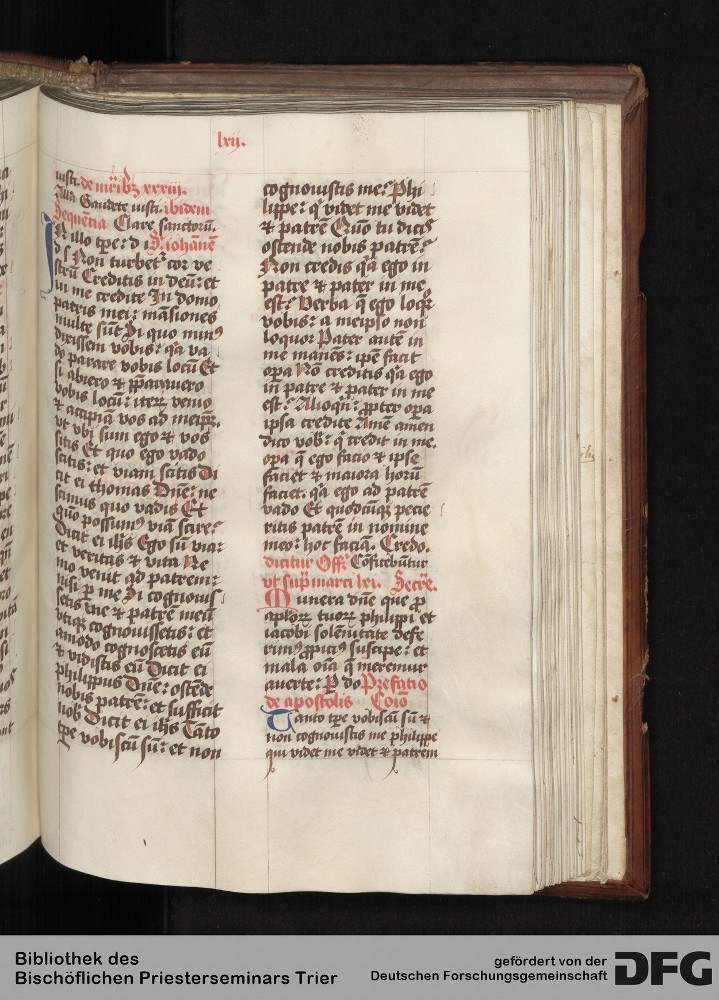 lxij.
iusti. de mr̄ib₃ xxxiii.
Al̄la Gaudete iusti. ibidem
Sequentia Clare sanctorū.
In illo tp̄e: d i S. iohanē
d s Non turbet᷑ cor ve
strū Creditis in deū: et
in me credite In domo
patris mei: māsiones
multe sūt Si quo minꝰ
dixissem vobis: q̄a va
do parare vobis locū Et
si abiero ⁊ p̄parauero
vobis locū: iterꝝ venio
⁊ acipiā vos ad meip̄m.
vt vbi sum ego ⁊ vos
sitis Et quo ego vado
scitis: et viam scitis Di
cit ei thomas Dn̄e: ne
scimus quo vadis Et
quō possumꝰ viā scire?
Dicit ei ih̄s Ego sū via:
et veritas ⁊ vita Ne
mo venit ad patrem:
nisi ꝑ me Si cognouis
setis me ⁊ patrē meū
vtiqꝫ cognouissetis: et
amodo cognoscetis eū
⁊ vidistis eū Dicit ei
philippus Dn̄e: ostēde
nobis patrē: et sufficit
nob̄ Dicit ei ih̄s Tāto
tp̄e vobiscū sū: et non
cognouistis me? Phi
lippe: q̄ videt me videt
⁊ patrē Quō tu dicis
ostende nobis patrē?
Non credis q̄a ego in
patre ⁊ pater in me
est? Verba q̄ ego loq̄r
vobis: a meipso non
loquor Pater autē in
me manēs: ip̄e facit
oꝑa Nō creditis q̄a ego
in patre ⁊ pater in me
est? Alioqn̄: ꝓpter oꝑa
ipsa credite Amē amen
dico vob̄: q̄ credit in me.
oꝑa q̄ ego facio ⁊ ipse
faciet ⁊ maiora horū
faciet. q̄a ego ad patrē
vado Et quodcūqꝫ pecie
ritis patrē in nomine
meo: hoc faciā. Credo.
dicitur Off̄. Cōfitebūtur
vt sup̄ marci lxi. Secre̅.
Munera dn̄e que ꝓ
ap̄loꝝ tuoꝝ philippi et
iacobi solēnitate defe
rimꝰ ꝓpiciꝰ suscipe: et
mala oīa q̄ meremur
auerte: P do Prefatio
de apostolis Coīo
Tanto tp̄e vobiscū sū ⁊
non cognouistis me philippe
qui videt me videt ⁊ patrem
Bibliothek des
Bischöflichen Priesterseminars Trier
gefördert von der
Deutschen Forschungsgemeinschaft
DFG